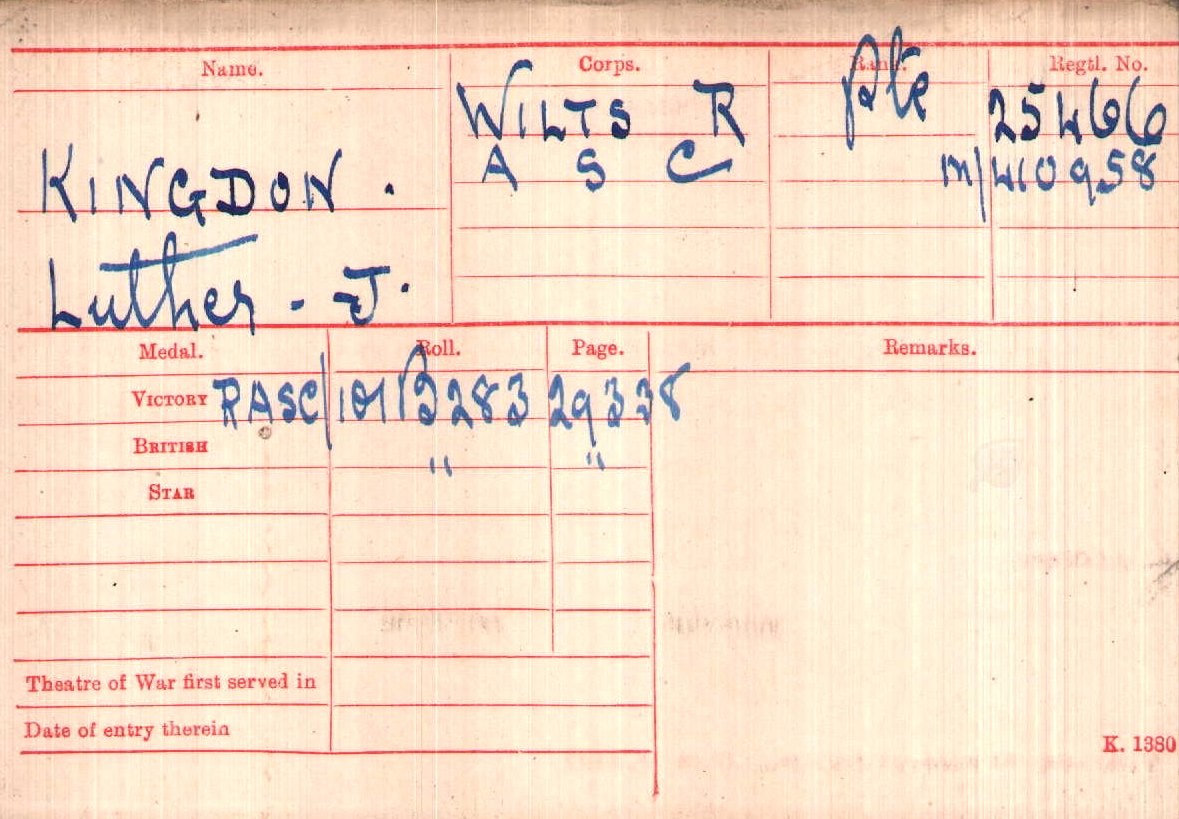 Name. Corps. Rank. Regtl. No.
WILTS R Pte 25466
A S C M/410958
KINGDON.
Luther - J.
Medal. Roll. Page. Remarks.
VICTORY RASC/101B283 29338
BRITISH " "
STAR
Theatre of War first served in
Date of entry therein
K. 1380